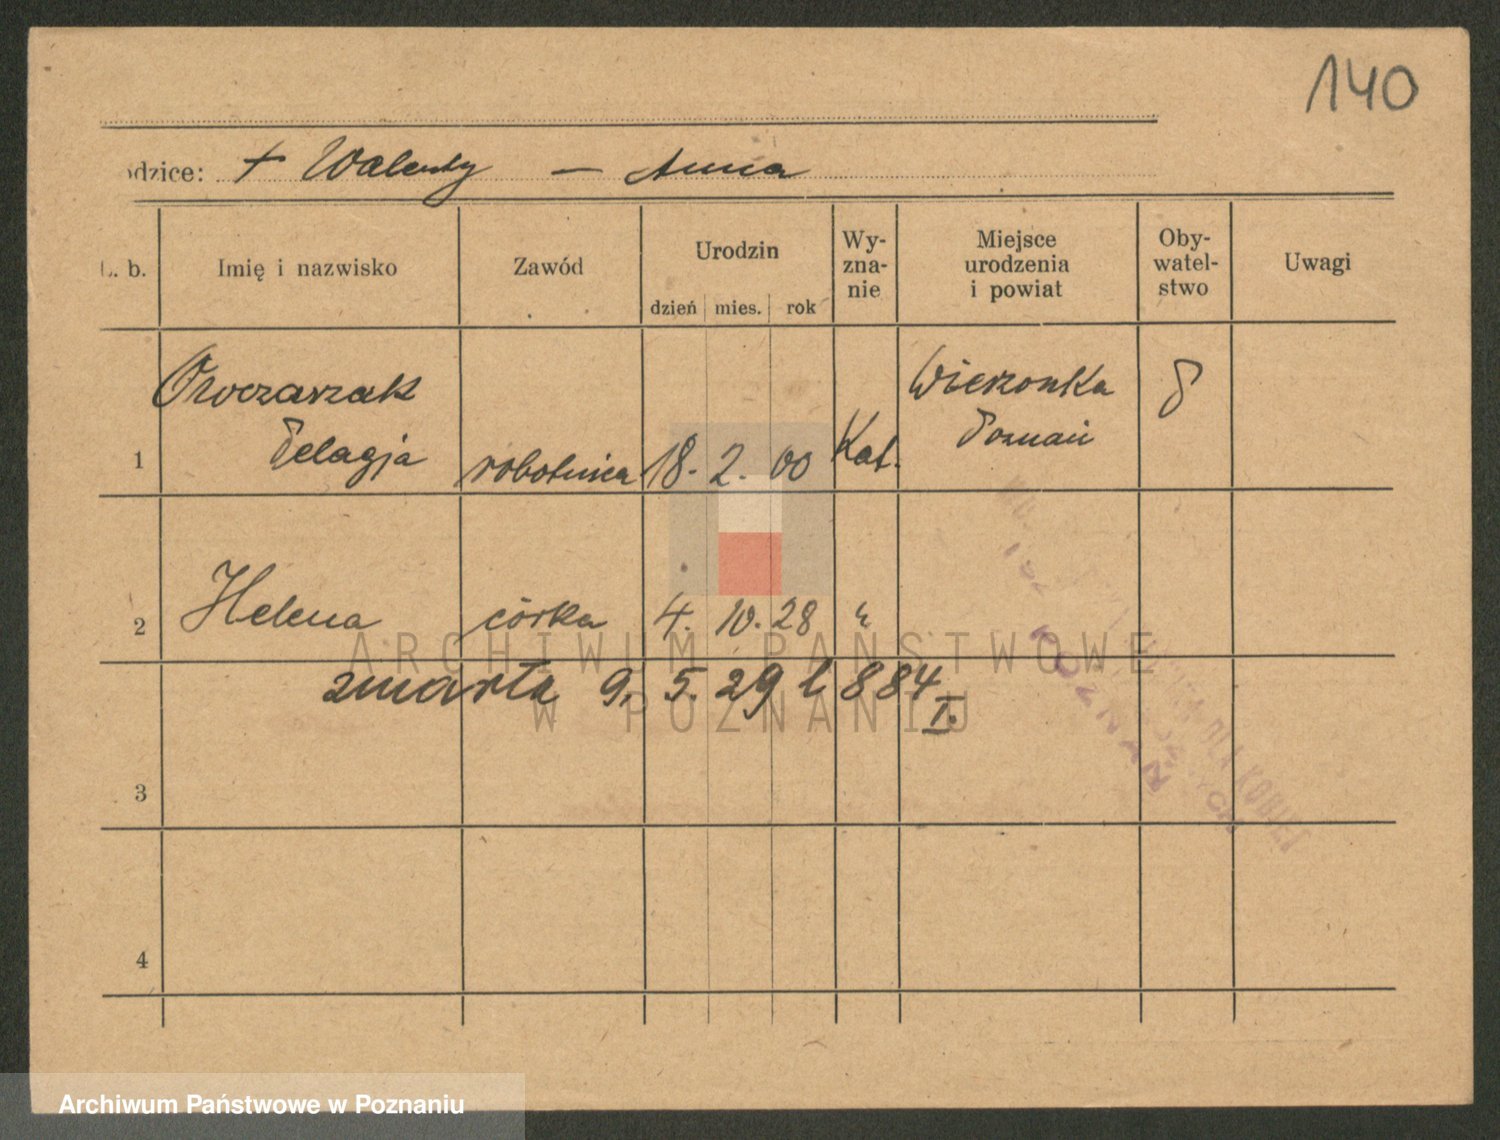 140
odzice: + Walenty — Anna
L. b. Imię i nazwisko Zawód Urodzin dzień mies. rok Wy-zna-nie Miejsce urodzenia i powiat Oby-watel-stwo Uwagi
Owczarzak Wierzonka P
1 Pelagja robotnica 18. 2. 00 Kat. Poznań
2 Helena córka 4. 10. 28 "
ARCHIWUM PAŃSTWOWE
zmarła 9. 5. 29 l 884 I.
W POZNANIU
POZNAŃ
DLA KOBIET
3
4
Archiwum Państwowe w Poznaniu